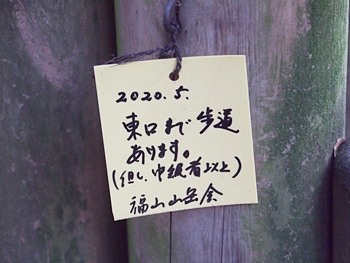 2020.5.
東口まで歩道
あります。
(但し、中級者以上)
福山山岳会